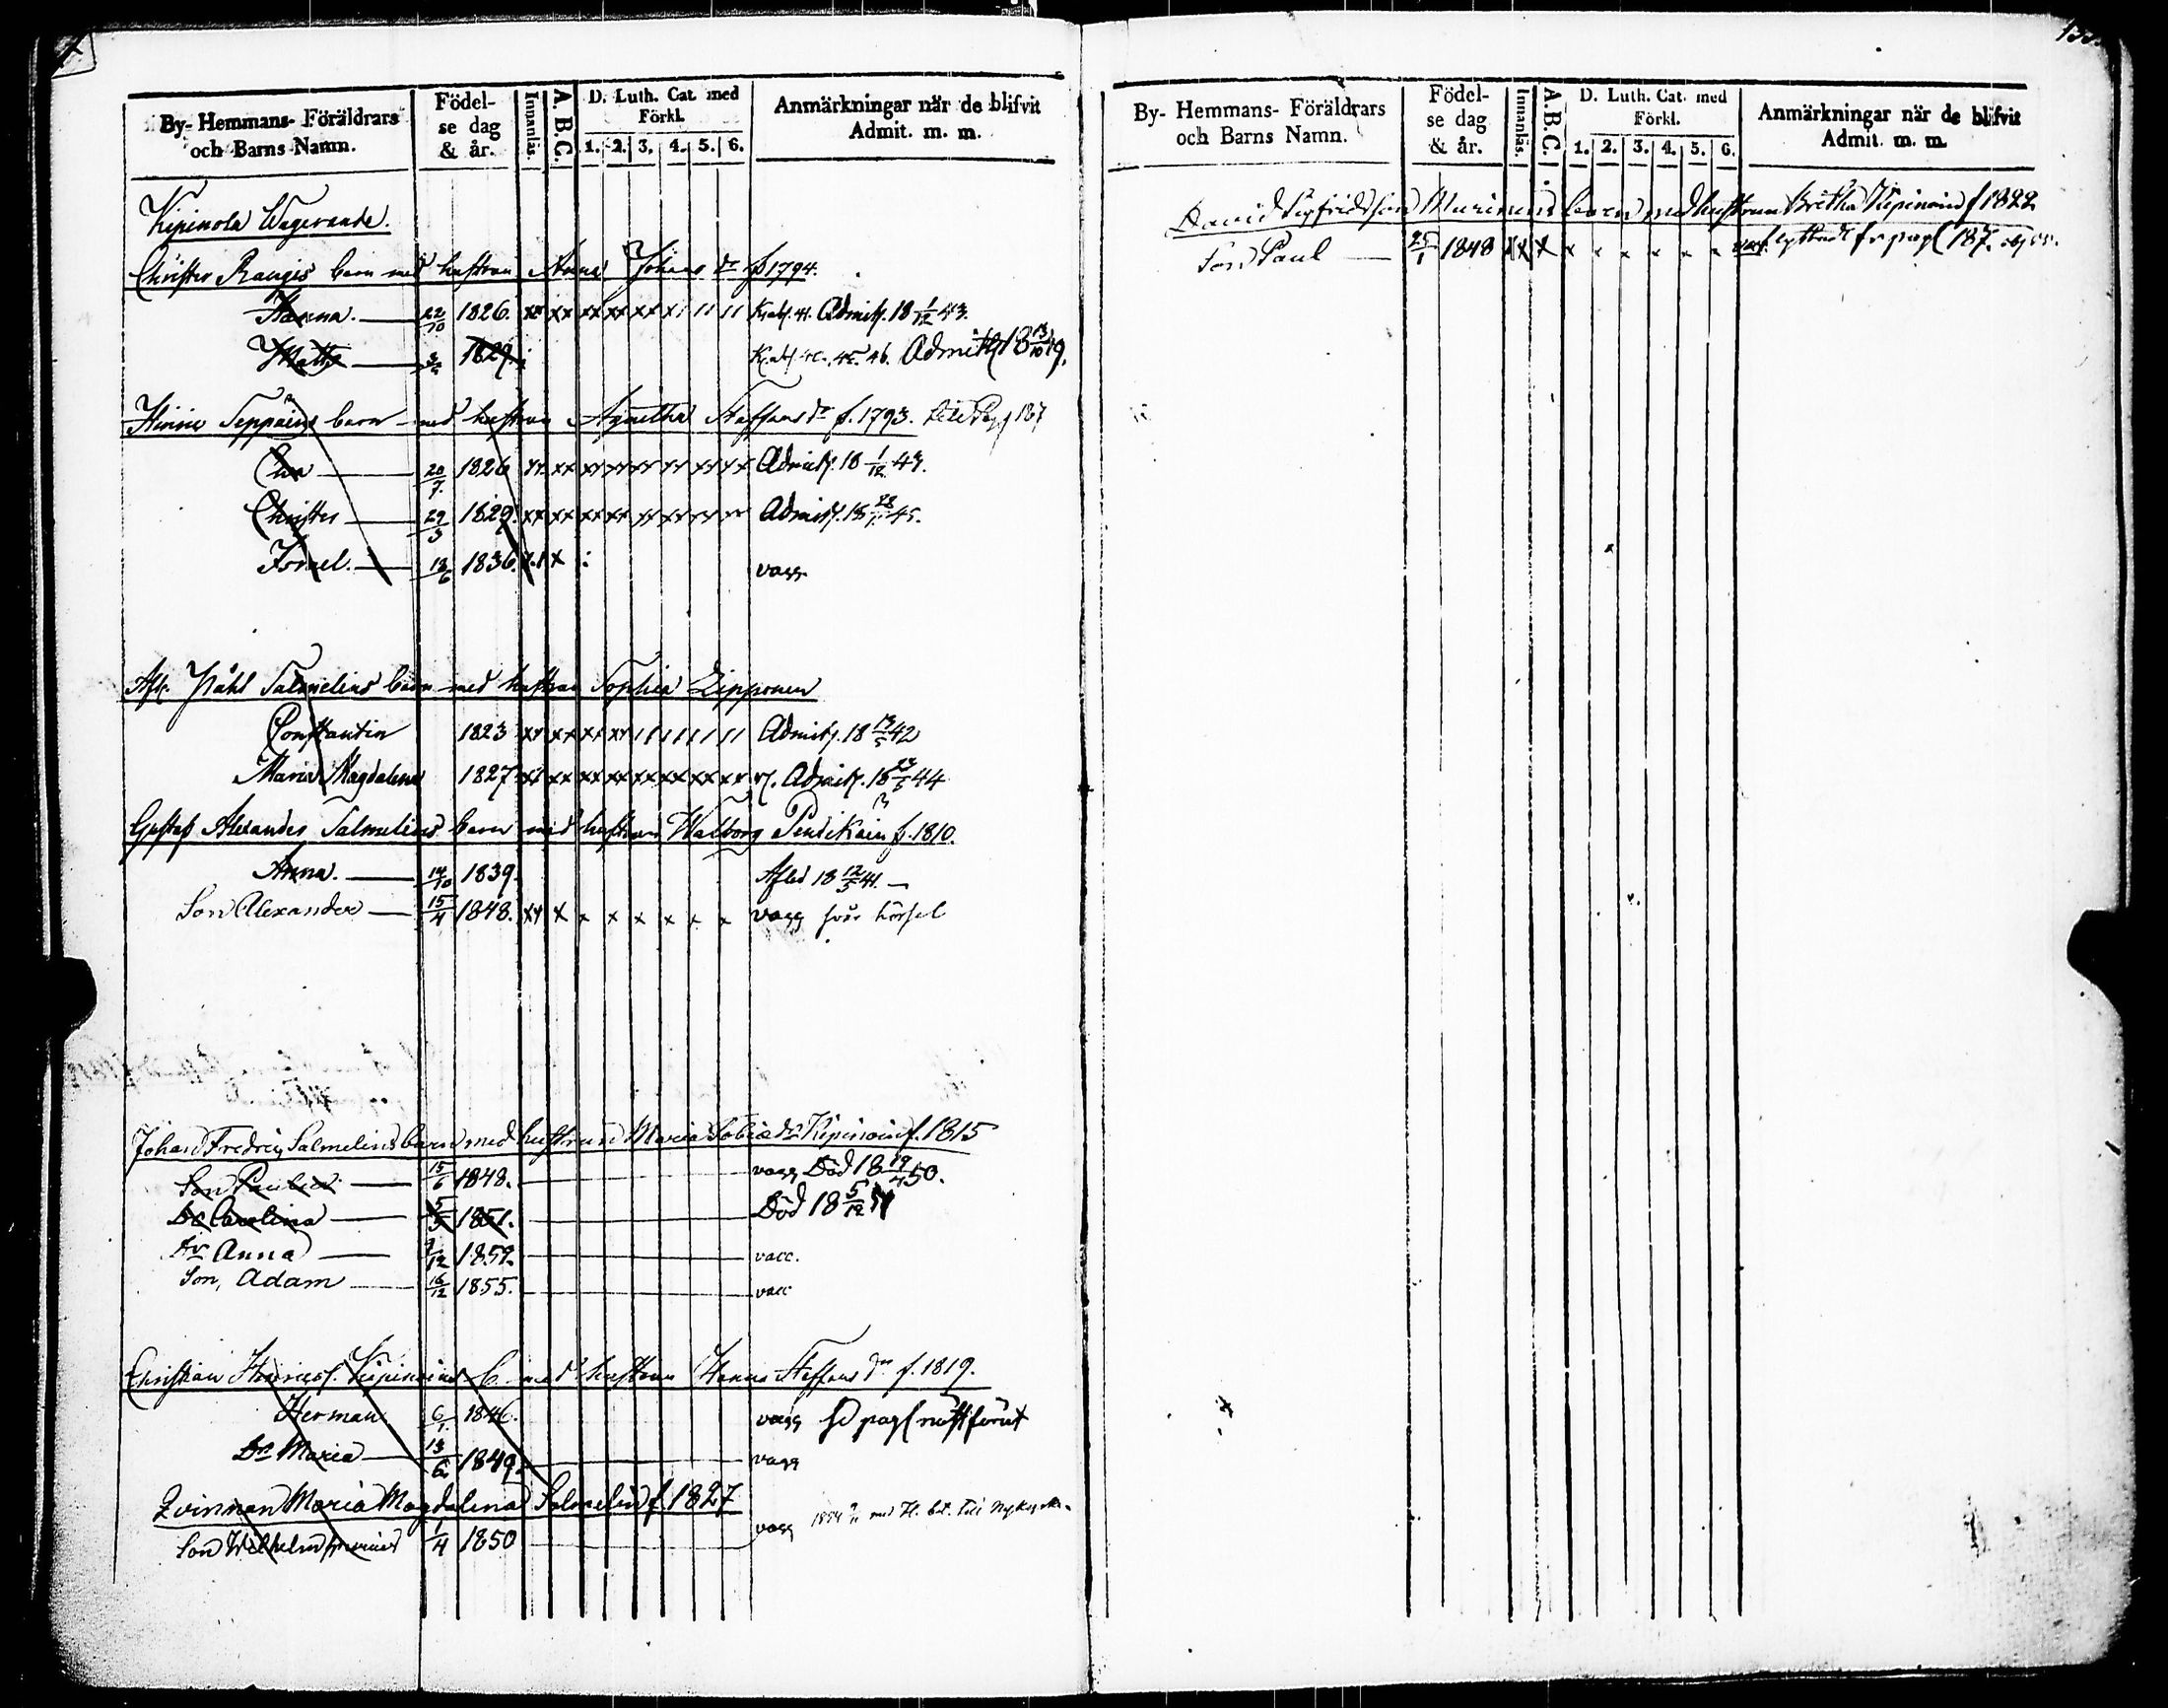 By- Hemmans- Föräldrars och Barns Namn.
Födelse dag & år.
Innanläs.
A. B. C.
D. Luth. Cat. med Förkl.
1. 2. 3. 4. 5. 6.
Anmärkningar när de blifvit Admit. m. m.
Kipinola Wagerande.
Christer barn med hustrun Anna Johans dr f 1794.
Hanna. 22/10 1826. xx xx xx xx xx x Admitt. 18 1/12 43.
Matts 1829. Admitt 18 13/10 49.
Hinric Seppäins barn med hustrun Agnetha Staffans dr f. 1793. 187
Eva 20/7. 1826 xx xx xx xx xx xx xx xx Admitt. 18 1/12 43.
Christer 29/3 1829. xx xx xx xx xx xx xx xx Admitt. 18 45.
Ismel. 18/6 1836. x vacc.
Afl. Påhl Salmelins barn med hustrun Sophia Lipponen
Constantin 1823 xx xx xx xx Admitt. 18 42
Maria Magdalena 1827 xx xx xx xx xx xx xx xx Admitt. 18 44
Gustaf Alexander Salmelins barn med hustrun Walborg Pendikäin f. 1810.
Anna. 14/10 1839. Afled 18 12/5 41.
Son Alexander 15/4 1848. xx x x x x x x x vacc svår hörsel
Johan Fredric Salmelins barn med hustrun Maria Tobiae dr Kipinoin f. 1815
Son Paulus 15/6 1848. vacc Död 18 19/4 50.
Dr Carolina 5/5 1851. Död 18 5/12 51
Dr Anna /12 1852. vacc.
Son, Adam 16/12 1855. vacc
Christian Henrics. Kipinoins b. med hustrun Hanna Staffans dr f. 1819.
Herman 6/1. 1846. vacc pag näst förut
Dr Maria 13/6 1849. vacc
Qvinnan Maria Magdalena Salmelin f. 1827
Son Wilhelm 1/4 1850 vacc 1854 med fl. bet. till Nykyrka
By- Hemmans- Föräldrars och Barns Namn.
Födelse dag & år.
Innanläs.
A. B. C.
D. Luth. Cat. med Förkl.
1. 2. 3. 4. 5. 6.
Anmärkningar när de blifvit Admit. m. m.
David Sigfridsson Murinens barn med hustrun Bretha Kipinoin f 1822
Son Paul 25/1 1848 x x x x x x x x vacc flyttade fr pag 187.